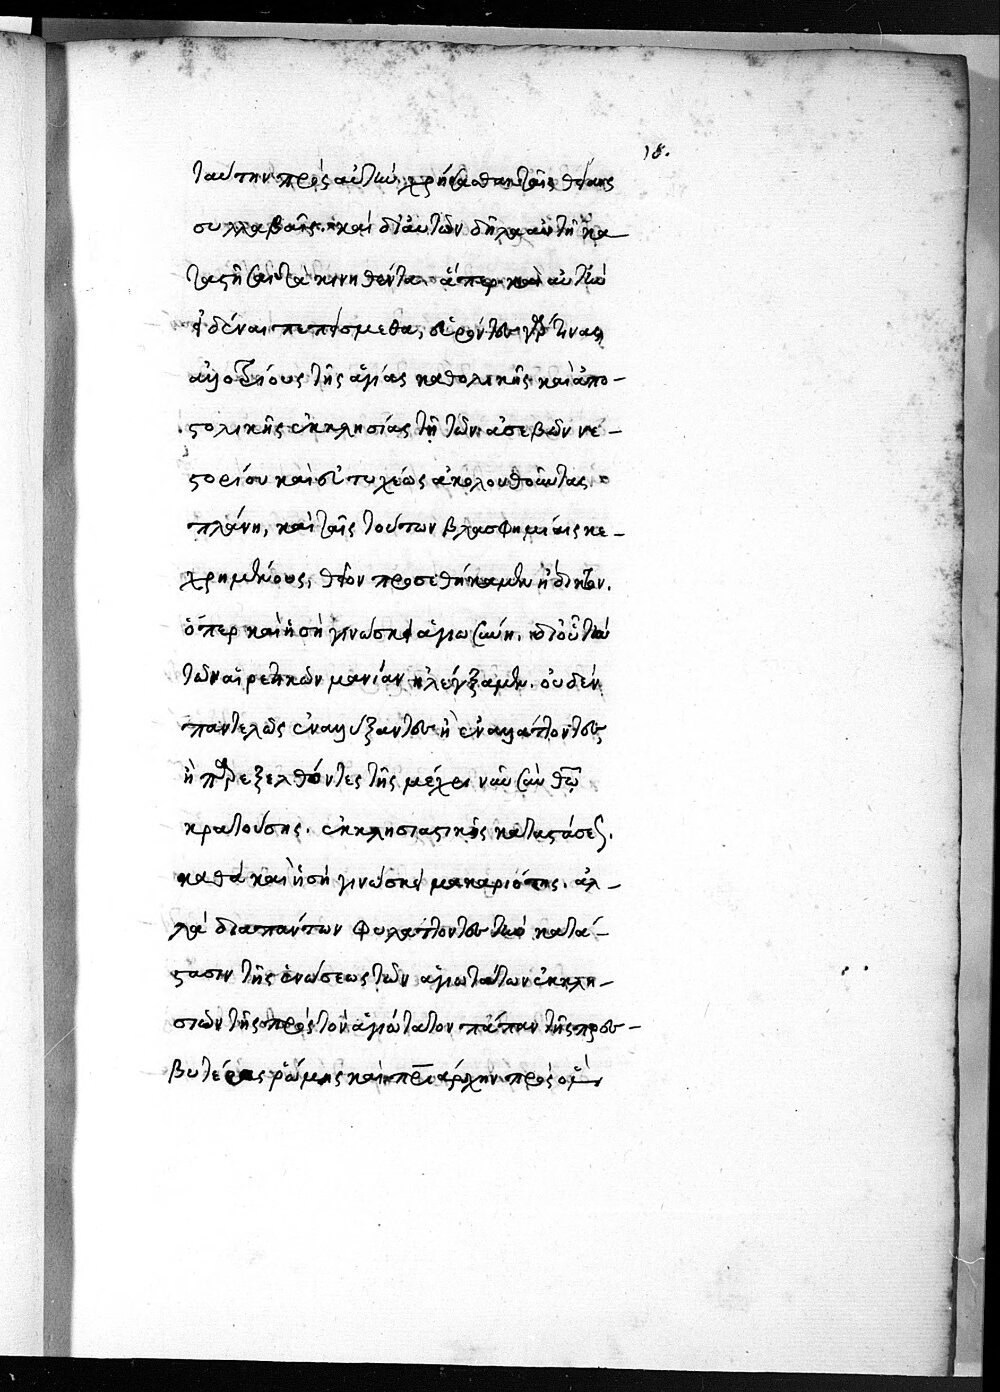 18.
ταύτην πρὸς αὐτὴν χρήσασθαι ταῖς θείαις
συλλαβαῖς. καὶ δι' αὐτῶν δῆλα αὐτῆ κα
ταστῆσαι τὰ κινηθέντα. ἅπερ καὶ αὐτὴν
εἰδέναι πεπείσμεθα, εὑρόντες γάρ τινας
ἀναξίους τῆς ἁγίας καθολικῆς καὶ ἀπο-
στολικῆς ἐκκλησίας τῇ τῶν ἀσεβῶν νε-
στορίου καὶ εὐτυχέως ἀκολουθοῦντας
πλάνῃ, καὶ ταῖς τούτων βλασφημίαις κε-
χρημένους, θεῖον προσεθήκαμεν ἤδικτον.
ὅπερ καὶ ἡ σὴ γινώσκει ἁγιωσύνη. δι' οὗ τὴν
τῶν αἱρετικῶν μανίαν ἠλέγξαμεν. οὐδὲν
παντελῶς ἐναμείξαντες ἢ ἐναλλάττοντες
ἢ παρεξελθόντες τῆς μέχρι νῦν σὺν θεῷ
κρατούσης. ἐκκλησιαστικῆς καταστάσεως.
καθὰ καὶ ἡ σὴ γινώσκει μακαριότης. ἀλ-
λὰ διαπάντων φυλάττοντες τὴν κατά-
στασιν τῆς ἑνώσεως τῶν ἁγιωτάτων ἐκκλη-
σιῶν τῆς πρὸς τὸν ἁγιώτατον πάπαν τῆς πρεσ-
βυτέρας ῥώμης καὶ πριάρχην πρὸς ὃν